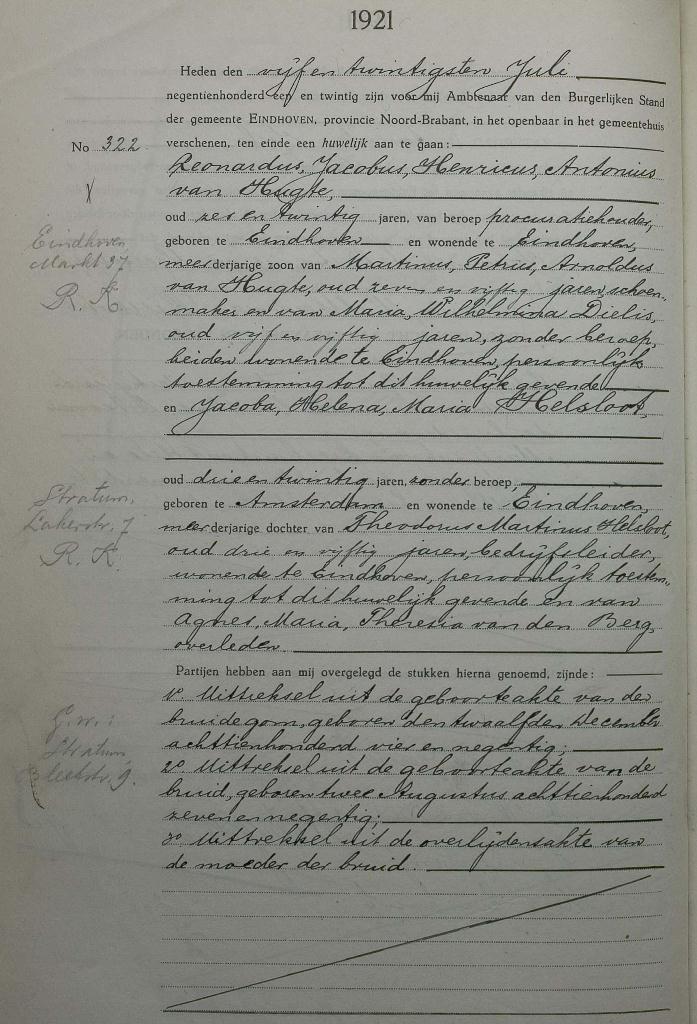 1921
Heden den vijf en twintigsten Juli
negentienhonderd een en twintig zijn voor mij Ambtenaar van den Burgerlijken Stand
der gemeente EINDHOVEN, provincie Noord-Brabant, in het openbaar in het gemeentehuis
No 322 verschenen, ten einde een huwelijk aan te gaan:
Leonardus, Jacobus, Henricus, Antonius
van Hugte,
oud zes en twintig jaren, van beroep procuratiehouder,
geboren te Eindhoven en wonende te Eindhoven,
Eindhoven
Markt 37
R. K.
meerderjarige zoon van Martinus, Petrus, Arnoldus
van Hugte, oud zeven en vijftig jaren, schoen-
maker en van Maria, Wilhelmina Dielis,
oud vijf en vijftig jaren, zonder beroep,
beiden wonende te Eindhoven, persoonlijk
toestemming tot dit huwelijk gevende
en Jacoba, Helena, Maria Helsloot,
oud drie en twintig jaren, zonder beroep,
geboren te Amsterdam en wonende te Eindhoven,
Stratum,
Lakerstr. 7
R. K.
meerderjarige dochter van Theodorus Martinus Helsloot,
oud drie en vijftig jaren, bedrijfsleider,
wonende te Eindhoven, persoonlijk toestem-
ming tot dit huwelijk gevende en van
Agnes, Maria, Theresia van den Berg,
overleden.
Partijen hebben aan mij overgelegd de stukken hierna genoemd, zijnde:
1o Uittreksel uit de geboorteakte van de
bruidegom, geboren den twaalfden December
achttienhonderd vier en negentig;
G.w.:
Stratum
2o Uittreksel uit de geboorteakte van de
bruid, geboren twee Augustus achttienhonderd
zeven en negentig;
3o Uittreksel uit de overlijdensakte van
de moeder der bruid.